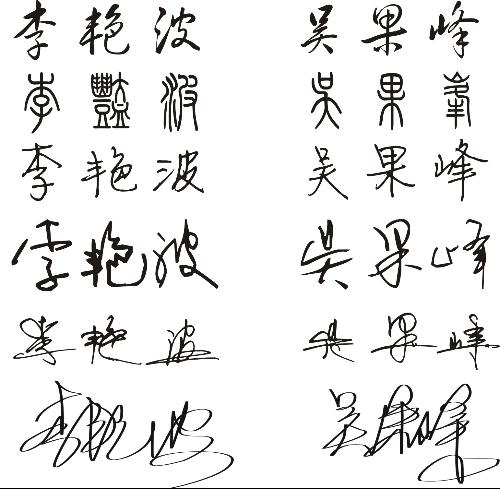 李艳波 吴果峰
李豔波 吴果峰
李艳波 吴果峰
李艳波 吴果峰
李艳波 吴果峰
李艳波 吴果峰